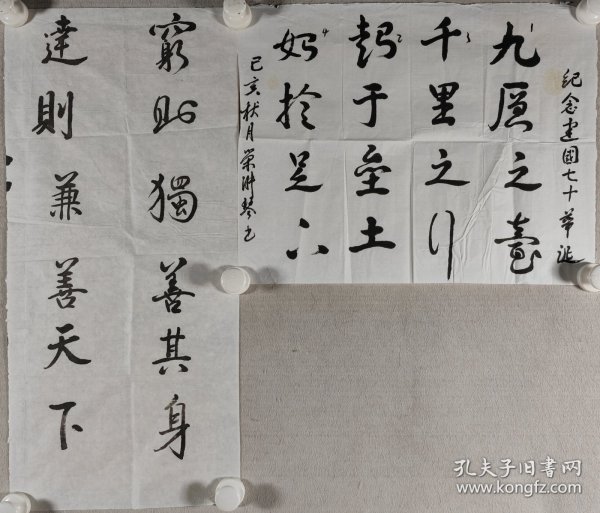 紀念建國七十華誕
九層之臺
千里之行
起于壘土
始於足下
己亥月琴书
窮則獨善其身
達則兼善天下
孔夫子旧书网
www.kongfz.com